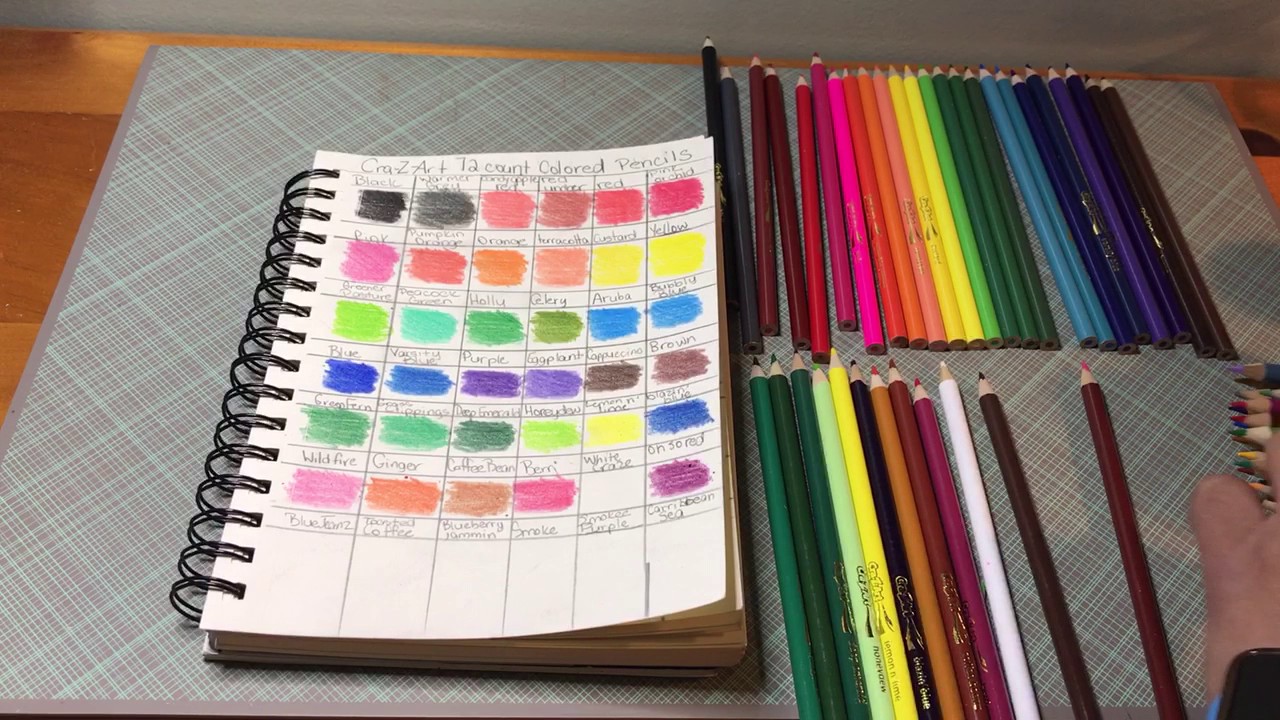 Cra-Z-Art 72 count Colored Pencils
Black warmer candyapple red umber red orchid
Pink Pumpkin Orange Orange terracotta custard Yellow
Greener Pasture Peacock Green Holly Celery Aruba Bubbly Blue
Blue Varsity Blue Purple Eggplant Cappuccino Brown
Green Fern Deep Emerald Honeydew Lemon n' Lime Blazin' blue
Wildfire Ginger Coffee Bean Berri White Oh so red
Blue Jeanz Coffee Blueberry jammin' Smoke Smokee Purple Carribbean Sea
honeydew
lemon n lime
blazin' blue